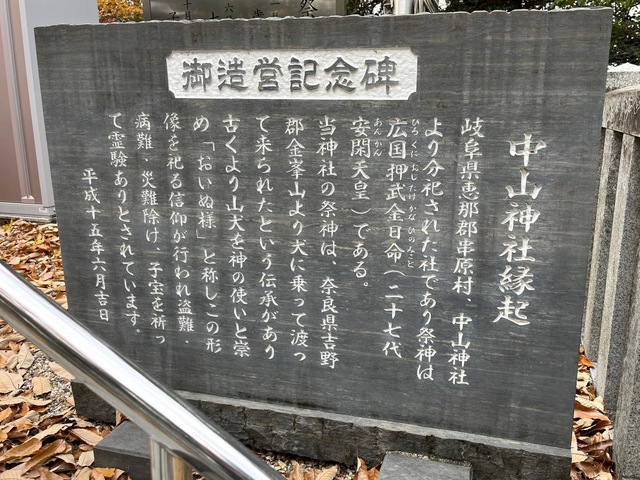 御造営記念碑
中山神社縁起
岐阜県恵那郡串原村、中山神社
より分祀された社であり祭神は
広国押武金日命(二十七代
ひろくにおしたけかなひのみこと
安閑天皇)である。
あんかん
当神社の祭神は、奈良県吉野
郡金峯山より犬に乗って渡っ
て来られたという伝承があり
古くより山犬を神の使いと崇
め「おいぬ様」と称しこの形
像を祀る信仰が行われ盗難、
病難、災難除け、子宝を祈っ
て霊験ありとされています。
平成十五年六月吉日